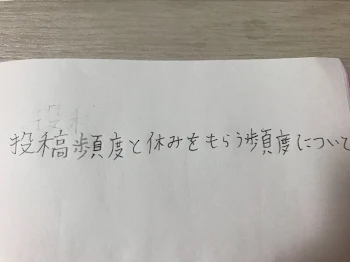 投稿頻度と休みをもらう頻度について